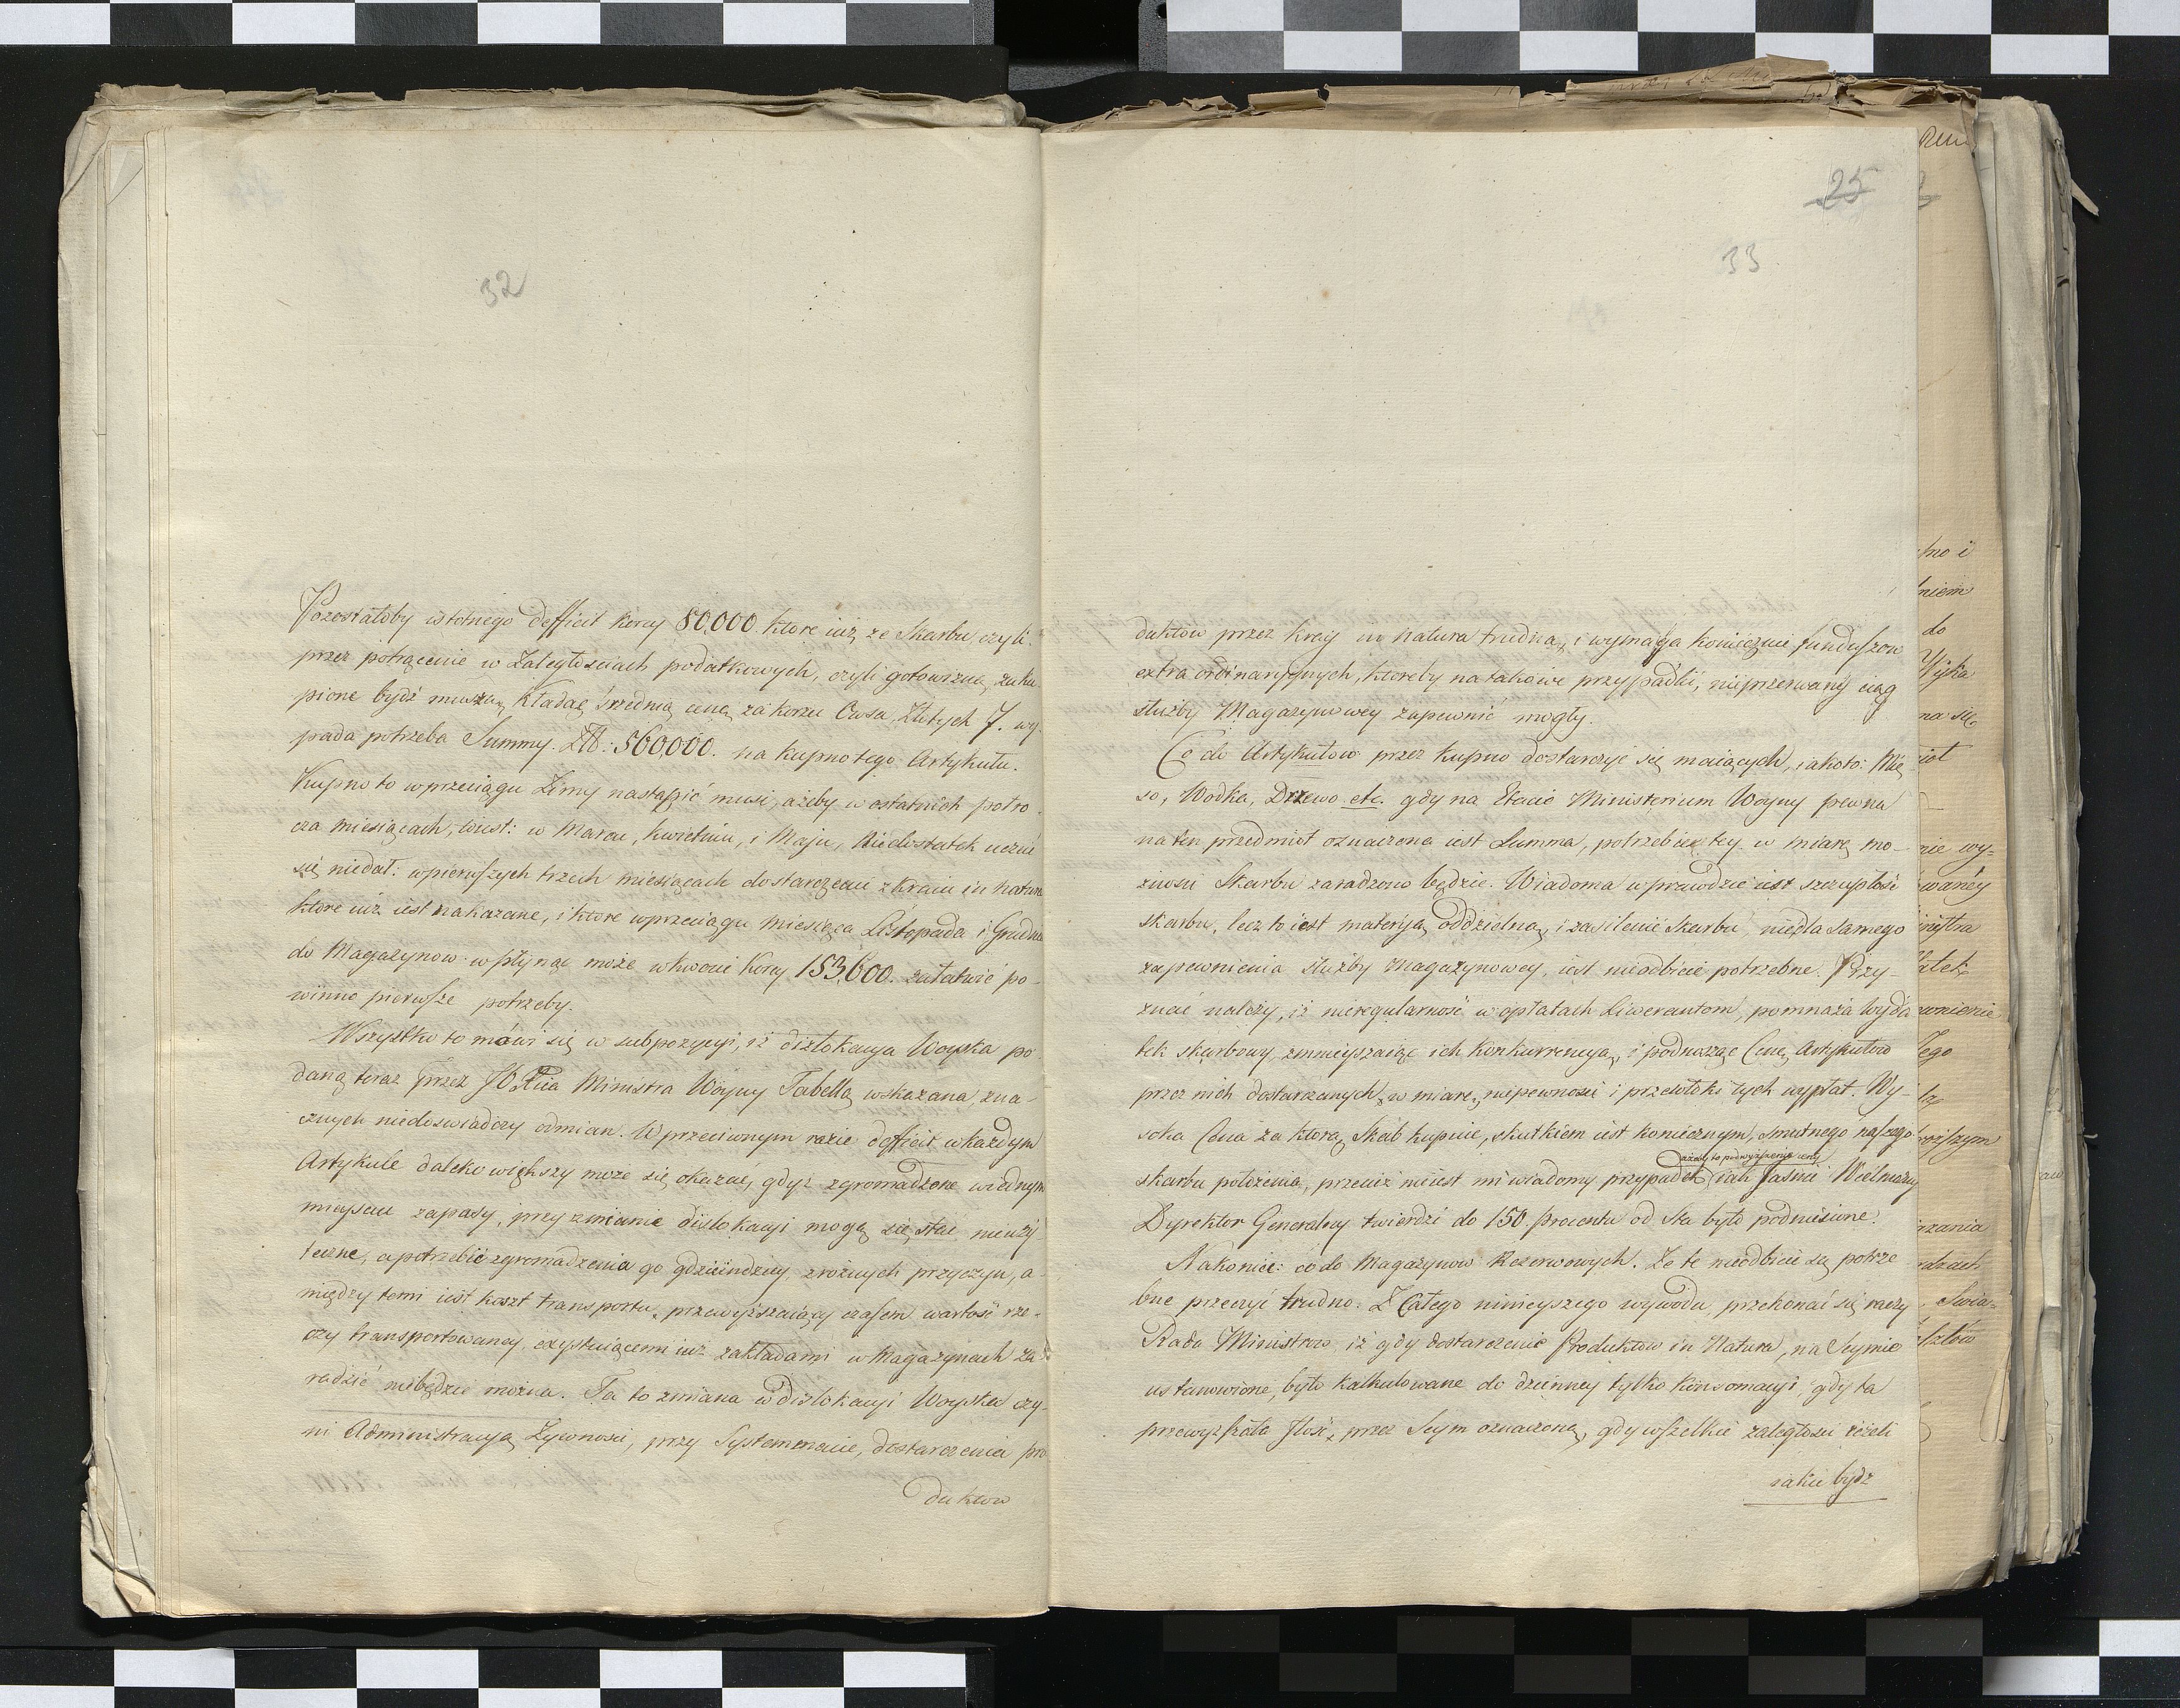 32
Pozostałoby istotnego defficit korcy 80,000 które iuż ze Skarbu czyli
przez potrącenie w Zaległościach podatkowych, czyli gotowizną zaku
pione bydź muszą, Kładąc średnią cenę za korzec Owsa Złotych 7. wy
pada potrzeba Summy Zł: 560,000. na kupno tego Artykułu.
Kupno to w przeciągu Zimy nastąpić musi, ażeby w ostatnich półro
cza miesiącach, to iest: w Marcu, Kwietniu, i Maju, Niedostatek uczuć
się niedał: w pierwszych trzech miesiącach dostarczenie z Kraiu in natura
które iuż iest nakazane, i które w przeciągu miesiąca Listopada i Grudnia
do Magazynow wpłynąć może w kwocie Korcy 153,600. załatwić po-
winno pierwsze potrzeby.
Wszystko to mówi się w subpozycyi, iż dizlokacya Woyska po
daną teraz przez JO Xcia Ministra Woyny Tabellą wskazana, zna-
cznych niedoświadczy odmian. W przeciwnym razie defficit w każdym
Artykule daleko większy może się okazać, gdyż zgromadzone w iednym
mieyscu zapasy, przy zmianie dislokacyi mogą się stać nieuży-
teczne, a potrzebie zgromadzenia go gdzieindziey z różnych przyczyn, a
między temi iest koszt transportu, przewyższaiący czasem wartość rze-
czy transportowaney, exystuiącemi iuż zakładami w Magazynach za
radzić niebędzie można. Ta to zmiana w dislokacyi Woyska czy-
ni Administracyą Żywności, przy Systemmacie, dostarczenia pro
duktow
25
33
duktow przez kray in natura trudną, i wymaga koniecznie funduszow
extraordinaryinych, któreby na takowe przypadki, nieprzerwany ciąg
służby Magazynowey zapewnić mogły.
Co do Artykułow przez kupno dostarczyć się maiących, iako to: Mię
so, Wodka, Drzewo etc. gdy na Etacie Ministerium Woyny pewna
na ten przedmiot oznaczona iest Summa, potrzebie tey w miarę mo-
żności Skarbu zaradzono będzie. Wiadoma wprawdzie iest szczupłość
skarbu, lecz to iest materyą oddzielną, i zasilenie Skarbu niedla samego
zapewnienia służby Magazynowey, iest nieodbicie potrzebne. Przy-
znać należy, iż nieregularność w opłatach Liwerantom, pomnaża Wyda
tek skarbowy, zmnieyszaiąc ich Konkurrencyą, i podnosząc Cenę Artykułow
przez nich dostarczanych, w miarę, niepewności i przewłoki tych wypłat. Wy-
soka Cena za którą Skarb kupuie, skutkiem iest koniecznym, smutnego naszego
ażeby to podwyższenie ceny
skarbu położenia, przecież nieiest mi wiadomy przypadek, iak Jaśnie Wielmożny
Dyrektor Generalny twierdzi do 150. procentu od sta było podniesione.
Nakoniec: co do Magazynow Rezerwowych. Że te nieodbicie są potrze
bne przeczyć trudno. Z Całego ninieyszego wywodu, przekonać się raczy
Rada Ministrow, iż gdy dostarczenie Produktow in Natura, na Seymie
ustanowione, było kalkulowane do dzienney tylko Konsomacyi, gdy ta
przewyższała Ilość, przez Seym oznaczoną, gdy wszelkie zaległości ieżeli
iakie bydź